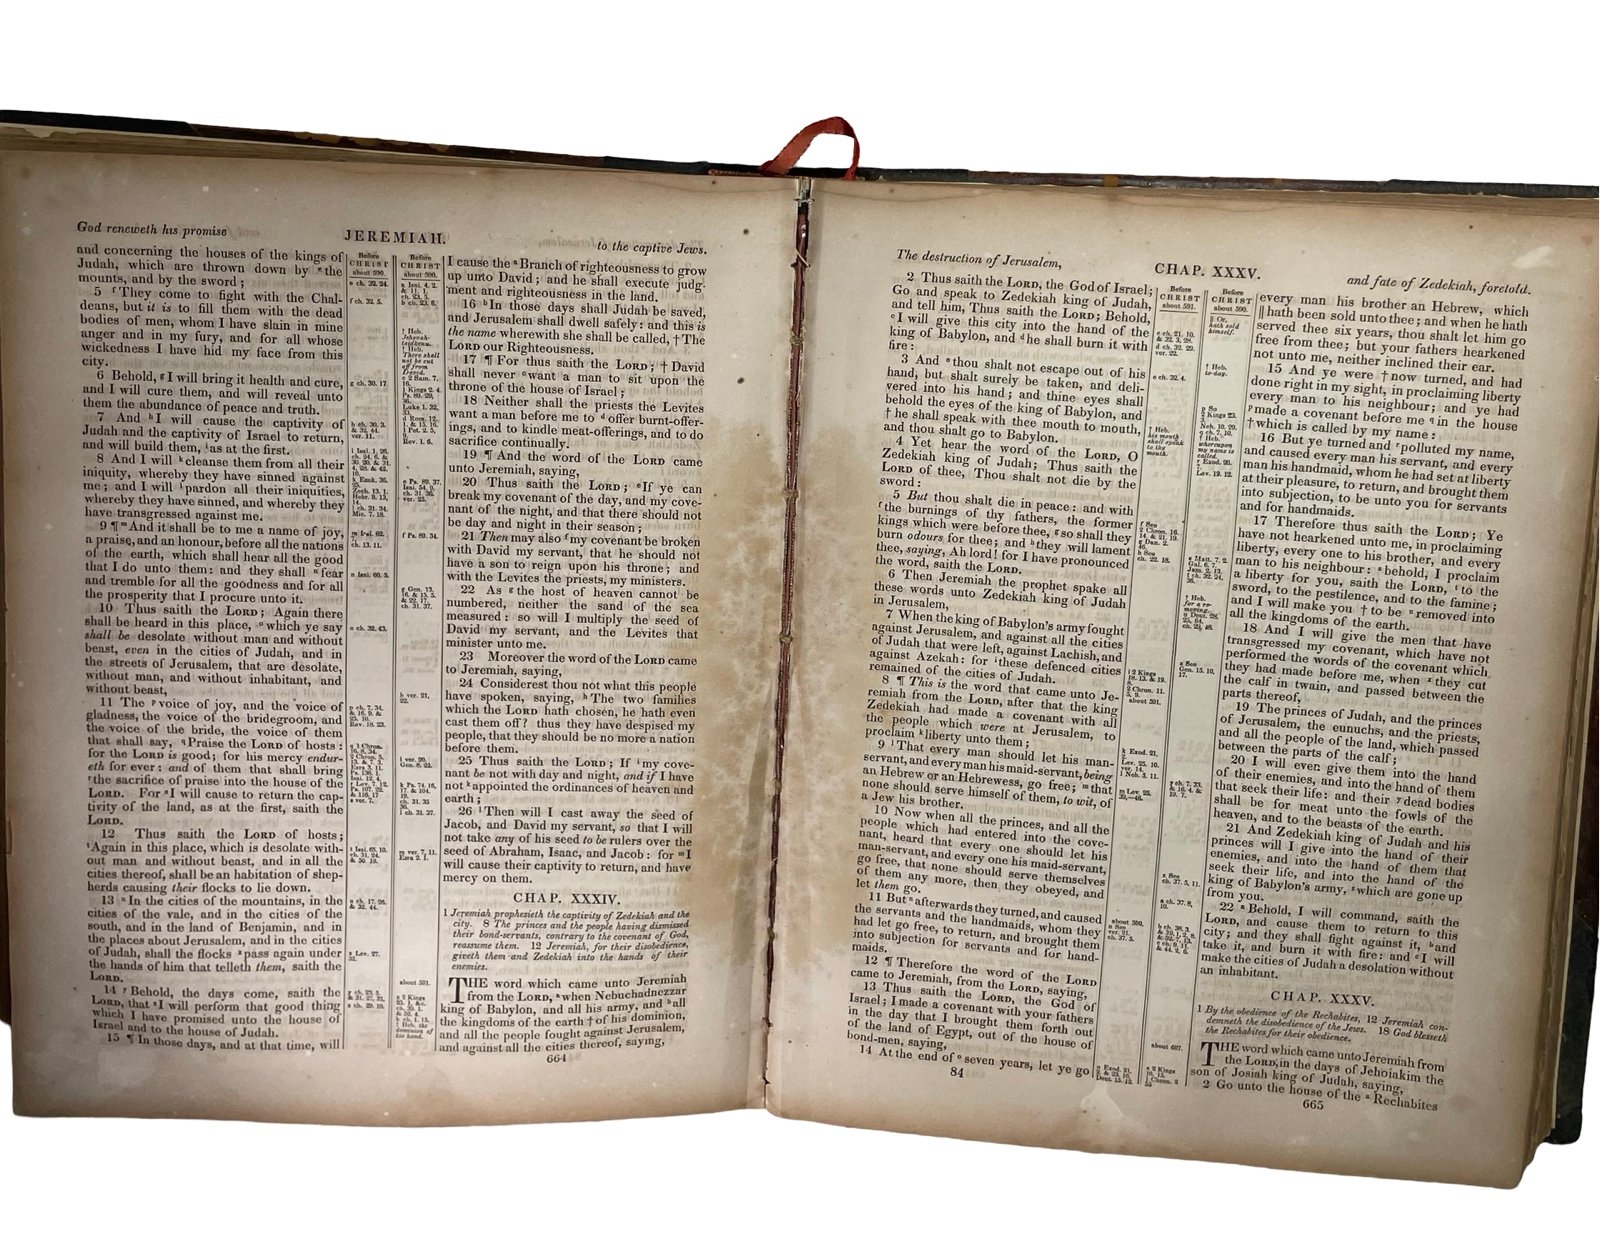 God reneweth his promise
JEREMIAH.
to the captive Jews.
and concerning the houses of the kings of
Judah, which are thrown down by e the
mounts, and by the sword;
5 f They come to fight with the Chal-
deans, but it is to fill them with the dead
bodies of men, whom I have slain in mine
anger and in my fury, and for all whose
wickedness I have hid my face from this
city.
6 Behold, g I will bring it health and cure,
and I will cure them, and will reveal unto
them the abundance of peace and truth.
7 And h I will cause the captivity of
Judah and the captivity of Israel to return,
and will build them, i as at the first.
8 And I will k cleanse them from all their
iniquity, whereby they have sinned against
me; and I will l pardon all their iniquities,
whereby they have sinned, and whereby they
have transgressed against me.
9 ¶ m And it shall be to me a name of joy,
a praise, and an honour, before all the nations
of the earth, which shall hear all the good
that I do unto them: and they shall n fear
and tremble for all the goodness and for all
the prosperity that I procure unto it.
10 Thus saith the LORD; Again there
shall be heard in this place, o which ye say
shall be desolate without man and without
beast, even in the cities of Judah, and in
the streets of Jerusalem, that are desolate,
without man, and without inhabitant, and
without beast,
11 The p voice of joy, and the voice of
gladness, the voice of the bridegroom, and
the voice of the bride, the voice of them
that shall say, q Praise the LORD of hosts:
for the LORD is good; for his mercy endur-
eth for ever: and of them that shall bring
r the sacrifice of praise into the house of the
LORD. For s I will cause to return the cap-
tivity of the land, as at the first, saith the
LORD.
12 Thus saith the LORD of hosts;
t Again in this place, which is desolate with-
out man and without beast, and in all the
cities thereof, shall be an habitation of shep-
herds causing their flocks to lie down.
13 u In the cities of the mountains, in the
cities of the vale, and in the cities of the
south, and in the land of Benjamin, and in
the places about Jerusalem, and in the cities
of Judah, shall the flocks x pass again under
the hands of him that telleth them, saith the
LORD.
14 y Behold, the days come, saith the
LORD, that z I will perform that good thing
which I have promised unto the house of
Israel and to the house of Judah.
15 ¶ In those days, and at that time, will
Before
CHRIST
about 590.
e ch. 32. 24.
f ch. 32. 5.
g ch. 30. 17.
h ch. 30. 3.
& 32. 44.
ver. 11.
n Isai. 60. 5.
o ch. 32. 43.
Before
CHRIST
about 590.
a Isai. 4. 2.
& 11. 1.
ch. 23. 5.
b ch. 23. 6.
f Ps. 89. 34.
h ver. 21,
22.
about 591.
I cause the a Branch of righteousness to grow
up unto David; and he shall execute judg-
ment and righteousness in the land.
16 b In those days shall Judah be saved,
and Jerusalem shall dwell safely: and this is
the name wherewith she shall be called, † The
LORD our Righteousness.
17 ¶ For thus saith the LORD; † David
shall never c want a man to sit upon the
throne of the house of Israel;
18 Neither shall the priests the Levites
want a man before me to d offer burnt-offer-
ings, and to kindle meat-offerings, and to do
sacrifice continually.
19 ¶ And the word of the LORD came
unto Jeremiah, saying,
20 Thus saith the LORD; e If ye can
break my covenant of the day, and my cove-
nant of the night, and that there should not
be day and night in their season;
21 Then may also f my covenant be broken
with David my servant, that he should not
have a son to reign upon his throne; and
with the Levites the priests, my ministers.
22 As g the host of heaven cannot be
numbered, neither the sand of the sea
measured: so will I multiply the seed of
David my servant, and the Levites that
minister unto me.
23 Moreover the word of the LORD came
to Jeremiah, saying,
24 Considerest thou not what this people
have spoken, saying, h The two families
which the LORD hath chosen, he hath even
cast them off? thus they have despised my
people, that they should be no more a nation
before them.
25 Thus saith the LORD; If i my cove-
nant be not with day and night, and if I have
not k appointed the ordinances of heaven and
earth;
26 l Then will I cast away the seed of
Jacob, and David my servant, so that I will
not take any of his seed to be rulers over the
seed of Abraham, Isaac, and Jacob: for m I
will cause their captivity to return, and have
mercy on them.
CHAP. XXXIV.
1 Jeremiah prophesieth the captivity of Zedekiah and the
city. 8 The princes and the people having dismissed
their bond-servants, contrary to the covenant of God,
reassume them. 12 Jeremiah, for their disobedience,
giveth them and Zedekiah into the hands of their
enemies.
THE word which came unto Jeremiah
from the LORD, a when Nebuchadnezzar
king of Babylon, and all his army, and b all
the kingdoms of the earth † of his dominion,
and all the people fought against Jerusalem,
and against all the cities thereof, saying,
664
The destruction of Jerusalem,
CHAP. XXXV.
and fate of Zedekiah, foretold.
2 Thus saith the LORD, the God of Israel;
Go and speak to Zedekiah king of Judah,
and tell him, Thus saith the LORD; Behold,
c I will give this city into the hand of the
king of Babylon, and d he shall burn it with
fire:
3 And e thou shalt not escape out of his
hand, but shalt surely be taken, and deli-
vered into his hand; and thine eyes shall
behold the eyes of the king of Babylon, and
† he shall speak with thee mouth to mouth,
and thou shalt go to Babylon.
4 Yet hear the word of the LORD, O
Zedekiah king of Judah; Thus saith the
LORD of thee, Thou shalt not die by the
sword:
5 But thou shalt die in peace: and with
f the burnings of thy fathers, the former
kings which were before thee, g so shall they
burn odours for thee; and h they will lament
thee, saying, Ah lord! for I have pronounced
the word, saith the LORD.
6 Then Jeremiah the prophet spake all
these words unto Zedekiah king of Judah
in Jerusalem,
7 When the king of Babylon's army fought
against Jerusalem, and against all the cities
of Judah that were left, against Lachish, and
against Azekah: for i these defenced cities
remained of the cities of Judah.
8 ¶ This is the word that came unto Je-
remiah from the LORD, after that the king
Zedekiah had made a covenant with all
the people which were at Jerusalem, to
proclaim k liberty unto them;
9 l That every man should let his man-
servant, and every man his maid-servant, being
an Hebrew or an Hebrewess, go free; m that
none should serve himself of them, to wit, of
a Jew his brother.
10 Now when all the princes, and all the
people which had entered into the cove-
nant, heard that every one should let his
man-servant, and every one his maid-servant,
go free, that none should serve themselves
of them any more, then they obeyed, and
let them go.
11 But n afterwards they turned, and caused
the servants and the handmaids, whom they
had let go free, to return, and brought them
into subjection for servants and for hand-
maids.
12 ¶ Therefore the word of the LORD
came to Jeremiah, from the LORD, saying,
13 Thus saith the LORD, the God of
Israel; I made a covenant with your fathers
in the day that I brought them forth out
of the land of Egypt, out of the house of
bond-men, saying,
14 At the end of o seven years, let ye go
84
Before
CHRIST
about 591.
c ch. 21. 10.
& 32. 3, 28.
d ch. 32. 29.
ver. 22.
e ch. 32. 4.
† Heb.
his mouth
shall speak
to thy
mouth.
about 590.
Before
CHRIST
about 590.
|| Or,
hath sold
himself.
† Heb.
to-day.
about 607.
every man his brother an Hebrew, which
|| hath been sold unto thee; and when he hath
served thee six years, thou shalt let him go
free from thee; but your fathers hearkened
not unto me, neither inclined their ear.
15 And ye were † now turned, and had
done right in my sight, in proclaiming liberty
every man to his neighbour; and ye had
p made a covenant before me q in the house
† which is called by my name:
16 But ye turned and r polluted my name,
and caused every man his servant, and every
man his handmaid, whom he had set at liberty
at their pleasure, to return, and brought them
into subjection, to be unto you for servants
and for handmaids.
17 Therefore thus saith the LORD; Ye
have not hearkened unto me, in proclaiming
liberty, every one to his brother, and every
man to his neighbour: s behold, I proclaim
a liberty for you, saith the LORD, t to the
sword, to the pestilence, and to the famine;
and I will make you † to be u removed into
all the kingdoms of the earth.
18 And I will give the men that have
transgressed my covenant, which have not
performed the words of the covenant which
they had made before me, when x they cut
the calf in twain, and passed between the
parts thereof,
19 The princes of Judah, and the princes
of Jerusalem, the eunuchs, and the priests,
and all the people of the land, which passed
between the parts of the calf;
20 I will even give them into the hand
of their enemies, and into the hand of them
that seek their life: and their y dead bodies
shall be for meat unto the fowls of the
heaven, and to the beasts of the earth.
21 And Zedekiah king of Judah and his
princes will I give into the hand of their
enemies, and into the hand of them that
seek their life, and into the hand of the
king of Babylon's army, z which are gone up
from you.
22 a Behold, I will command, saith the
LORD, and cause them to return to this
city; and they shall fight against it, b and
take it, and burn it with fire: and c I will
make the cities of Judah a desolation without
an inhabitant.
CHAP. XXXV.
1 By the obedience of the Rechabites, 12 Jeremiah con-
demneth the disobedience of the Jews. 18 God blesseth
the Rechabites for their obedience.
THE word which came unto Jeremiah from
the LORD, in the days of Jehoiakim the
son of Josiah king of Judah, saying,
2 Go unto the house of the a Rechabites
665